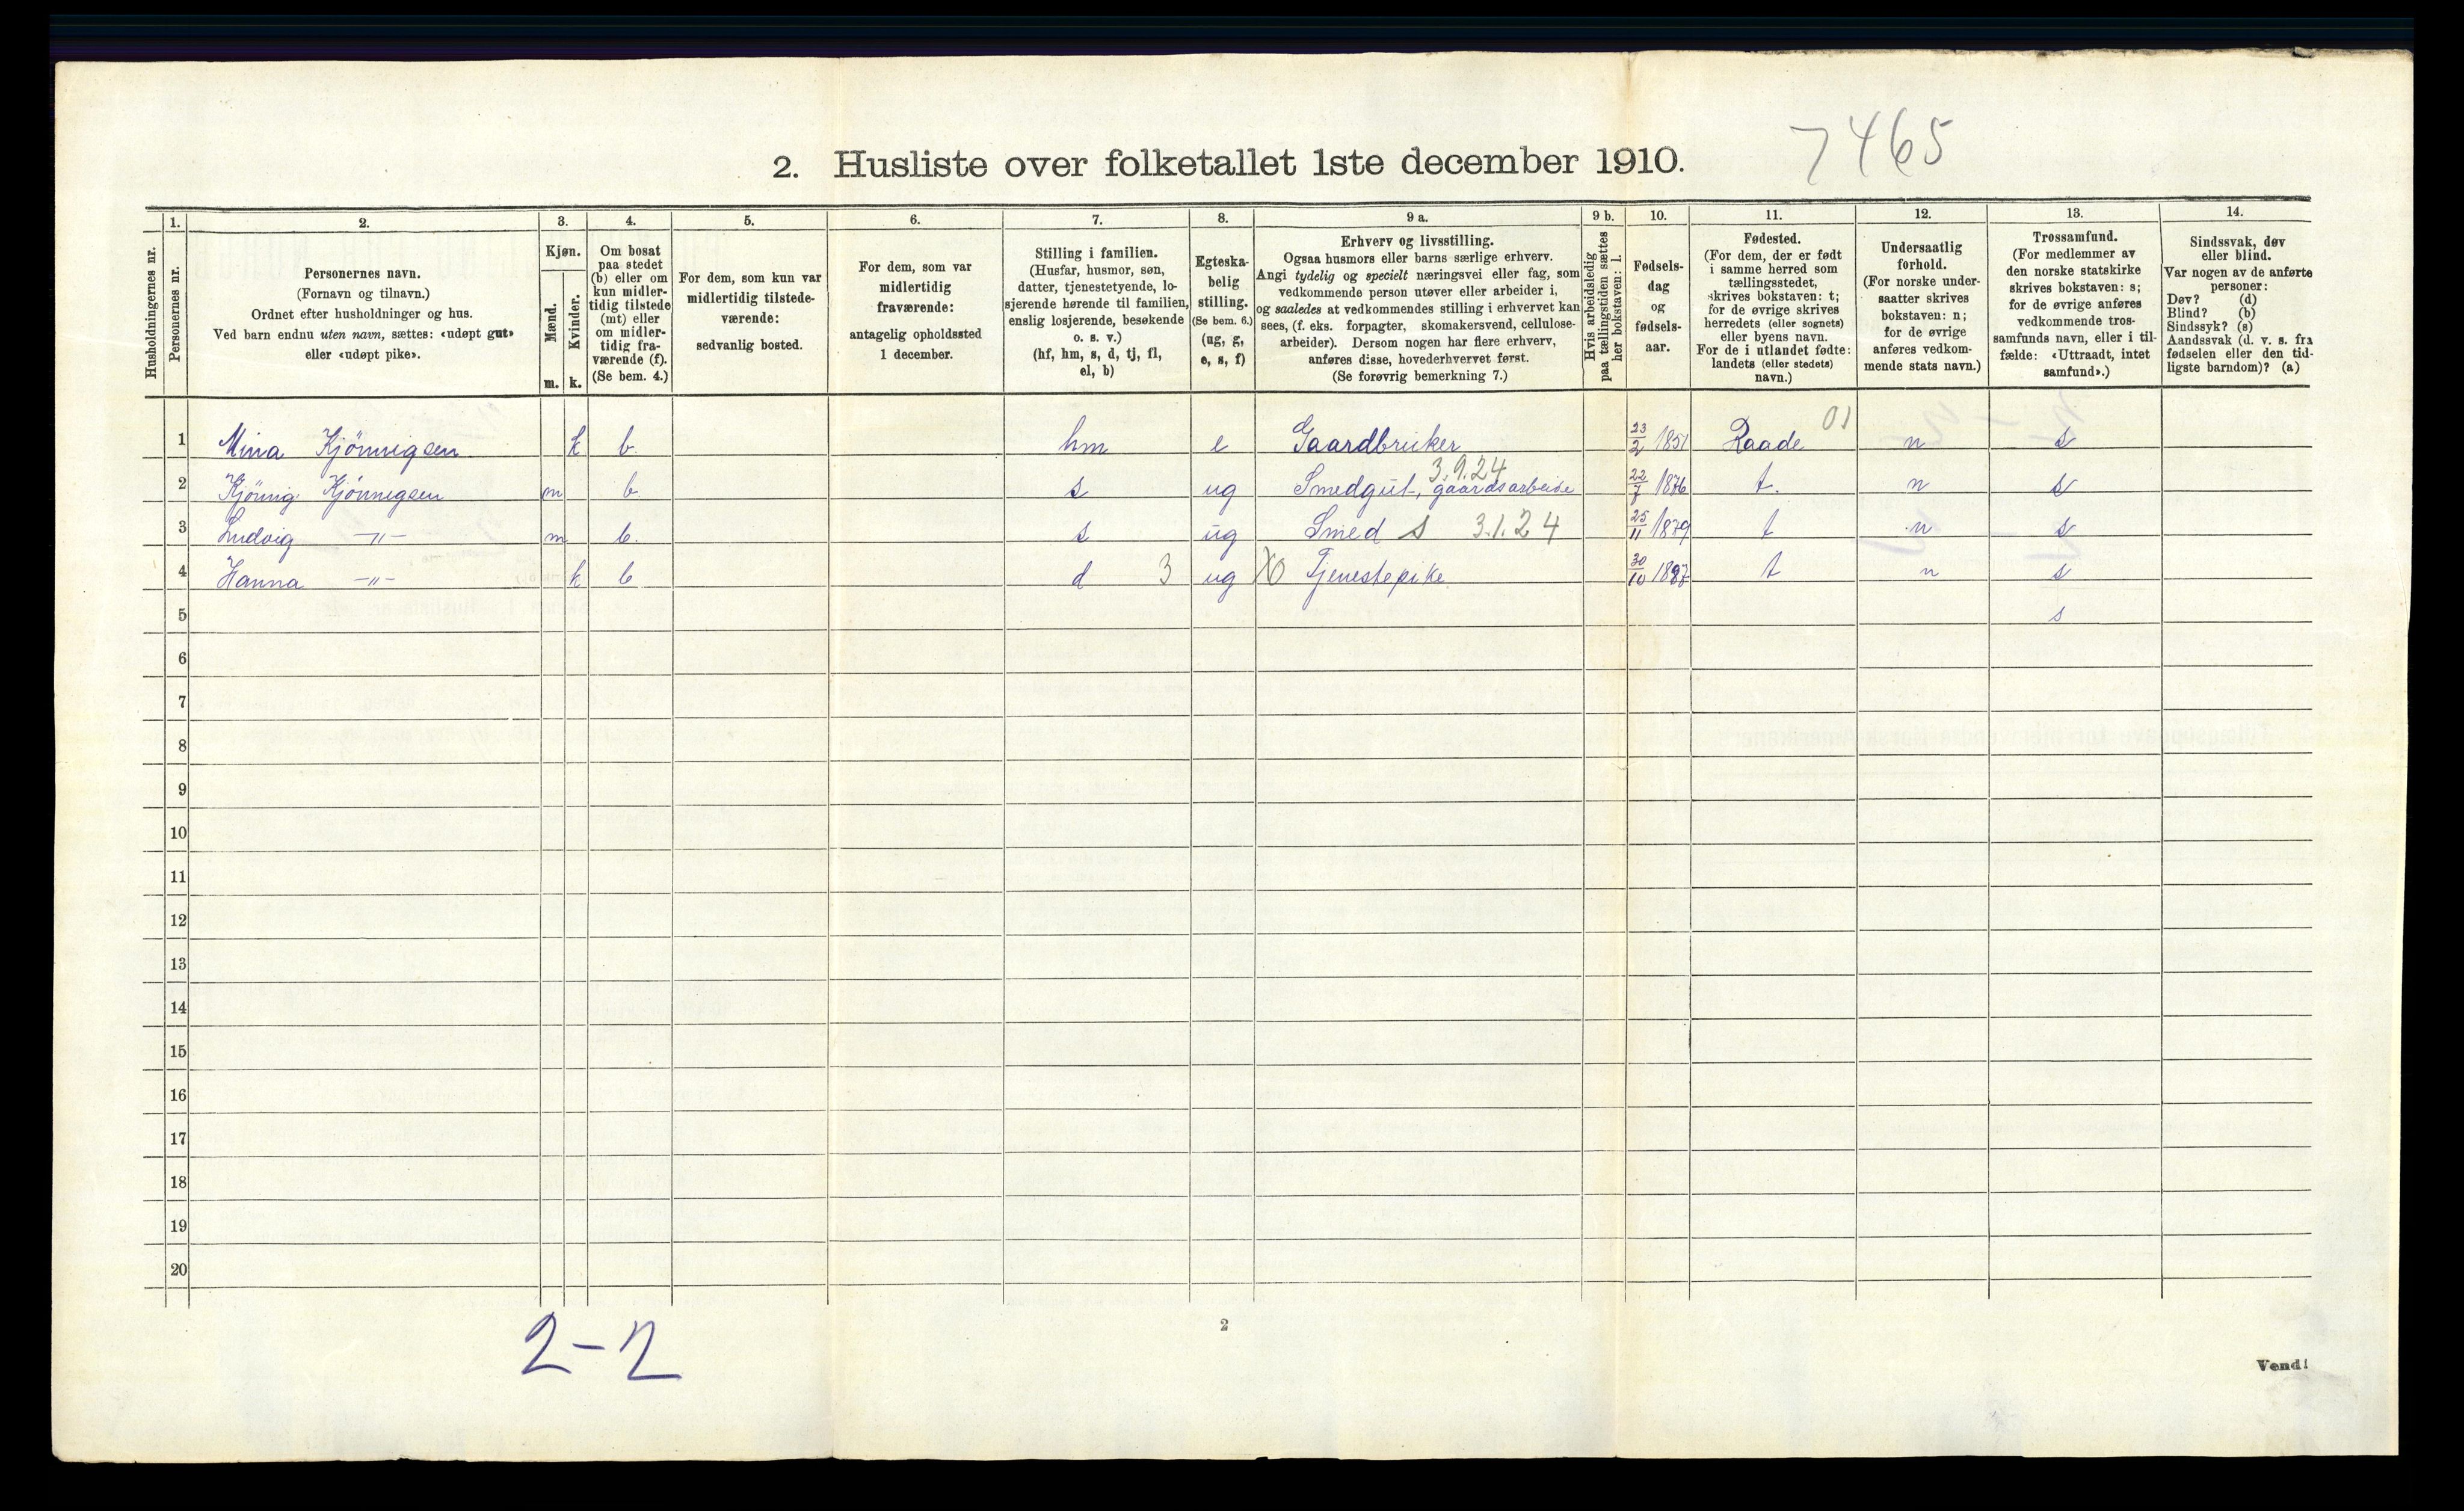 7465
2. Husliste over folketallet 1ste december 1910.
Husholdningernes nr.
1.
Personernes nr.
2.
Personernes navn.
(Fornavn og tilnavn.)
Ordnet efter husholdninger og hus.
Ved barn endnu uten navn, sættes: «udøpt gut»
eller «udøpt pike».
3.
Kjøn.
Mænd.
m.
Kvinder.
k.
4.
Om bosat
paa stedet
(b) eller om
kun midler-
tidig tilstede
(mt) eller
om midler-
tidig fra-
værende (f).
(Se bem. 4.)
5.
For dem, som kun var
midlertidig tilstede-
værende:
sedvanlig bosted.
6.
For dem, som var
midlertidig
fraværende:
antagelig opholdssted
1 december.
7.
Stilling i familien.
(Husfar, husmor, søn,
datter, tjenestetyende, lo-
sjerende hørende til familien,
enslig losjerende, besøkende
o. s. v.)
(hf, hm, s, d, tj, fl,
el, b)
8.
Egteska-
belig
stilling.
(Se bem. 6.)
(ug, g,
e, s, f)
9 a.
Erhverv og livsstilling.
Ogsaa husmors eller barns særlige erhverv.
Angi tydelig og specielt næringsvei eller fag, som
vedkommende person utøver eller arbeider i,
og saaledes at vedkommendes stilling i erhvervet kan
sees, (f. eks. forpagter, skomakersvend, cellulose-
arbeider). Dersom nogen har flere erhverv,
anføres disse, hovederhvervet først.
(Se forøvrig bemerkning 7.)
9 b.
Hvis arbeidsledig
paa tællingstiden sættes
her bokstaven: l.
10.
Fødsels-
dag
og
fødsels-
aar.
11.
Fødested.
(For dem, der er født
i samme herred som
tællingsstedet,
skrives bokstaven: t;
for de øvrige skrives
herredets (eller sognets)
eller byens navn.
For de i utlandet fødte:
landets (eller stedets)
navn.)
12.
Undersaatlig
forhold.
(For norske under-
saatter skrives
bokstaven: n;
for de øvrige
anføres vedkom-
mende stats navn.)
13.
Trossamfund.
(For medlemmer av
den norske statskirke
skrives bokstaven: s;
for de øvrige anføres
vedkommende tros-
samfunds navn, eller i til-
fælde: «Uttraadt, intet
samfund».)
14.
Sindssvak, døv
eller blind.
Var nogen av de anførte
personer:
Døv? (d)
Blind? (b)
Sindssyk? (s)
Aandssvak (d. v. s. fra
fødselen eller den tid-
ligste barndom)? (a)
01
1 Mina Kjönnigsen k b hm e Gaardbruker 23/2 1851 Raade n s
3.9.24
2 Kjönnig Kjönnigsen m b. s ug Smedgut, gaardsarbeide 22/7 1876 t. n s
3 Ludvig -"- m b. s ug Smed s 3.1.24 25/11 1879 t n s
4 Hanna -"- k b d 3 ug Tjenestepike 30/10 1887 t n s
5 s
6
7
8
9
10
11
12
13
14
15
16
17
18
19
20
2-2
2
Vend!